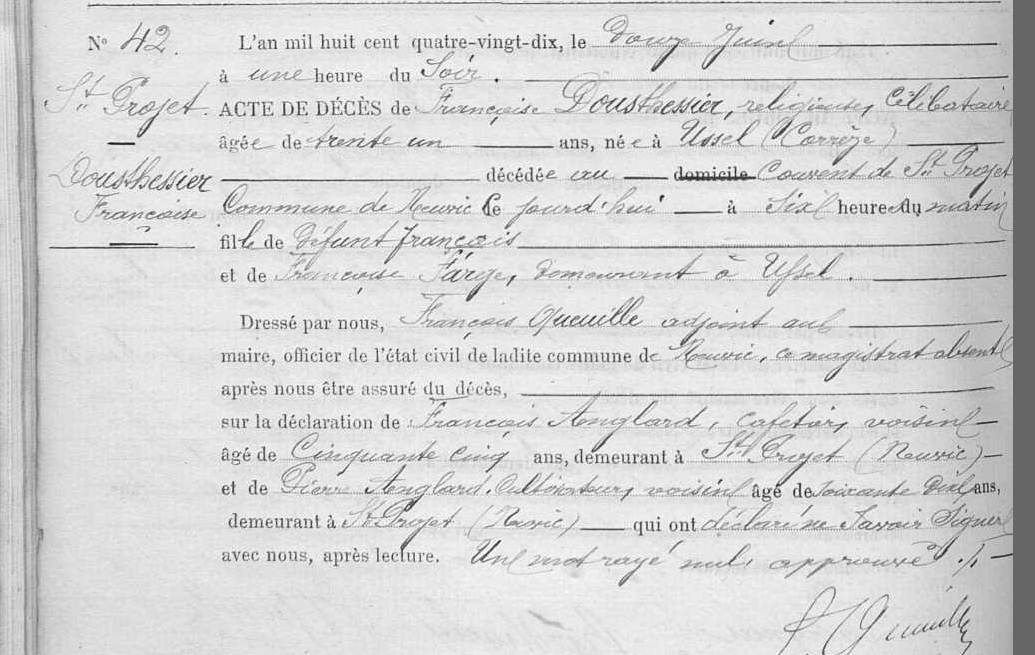 N° 42.
St Projet.
Dousthessier
Françoise
L'an mil huit cent quatre-vingt-dix, le douze Juin
à une heure du Soir.
ACTE DE DÉCÈS de Françoise Dousthessier, religieuse, Célibataire
âgée de trente un ans, née à Ussel (Corrèze)
décédée au domicile Couvent de St Projet
Commune de Neuvic Ce jourd'hui à Six heure du matin
fille de défunt françois
et de Françoise Farge, demeurant à Ussel.
Dressé par nous, François Queuille adjoint au
maire, officier de l'état civil de ladite commune de Neuvic, ce magistrat absent
après nous être assuré du décès,
sur la déclaration de François Anglard, cafetier, voisin
âgé de Cinquante cinq ans, demeurant à St Projet (Neuvic)
et de Pierre Anglard, Cultivateur, voisin âgé de soixante dix ans,
demeurant à St Projet (Neuvic) qui ont déclaré ne Savoir Signer
avec nous, après lecture. Un mot rayé nul, approuvé ./.
F Queuille